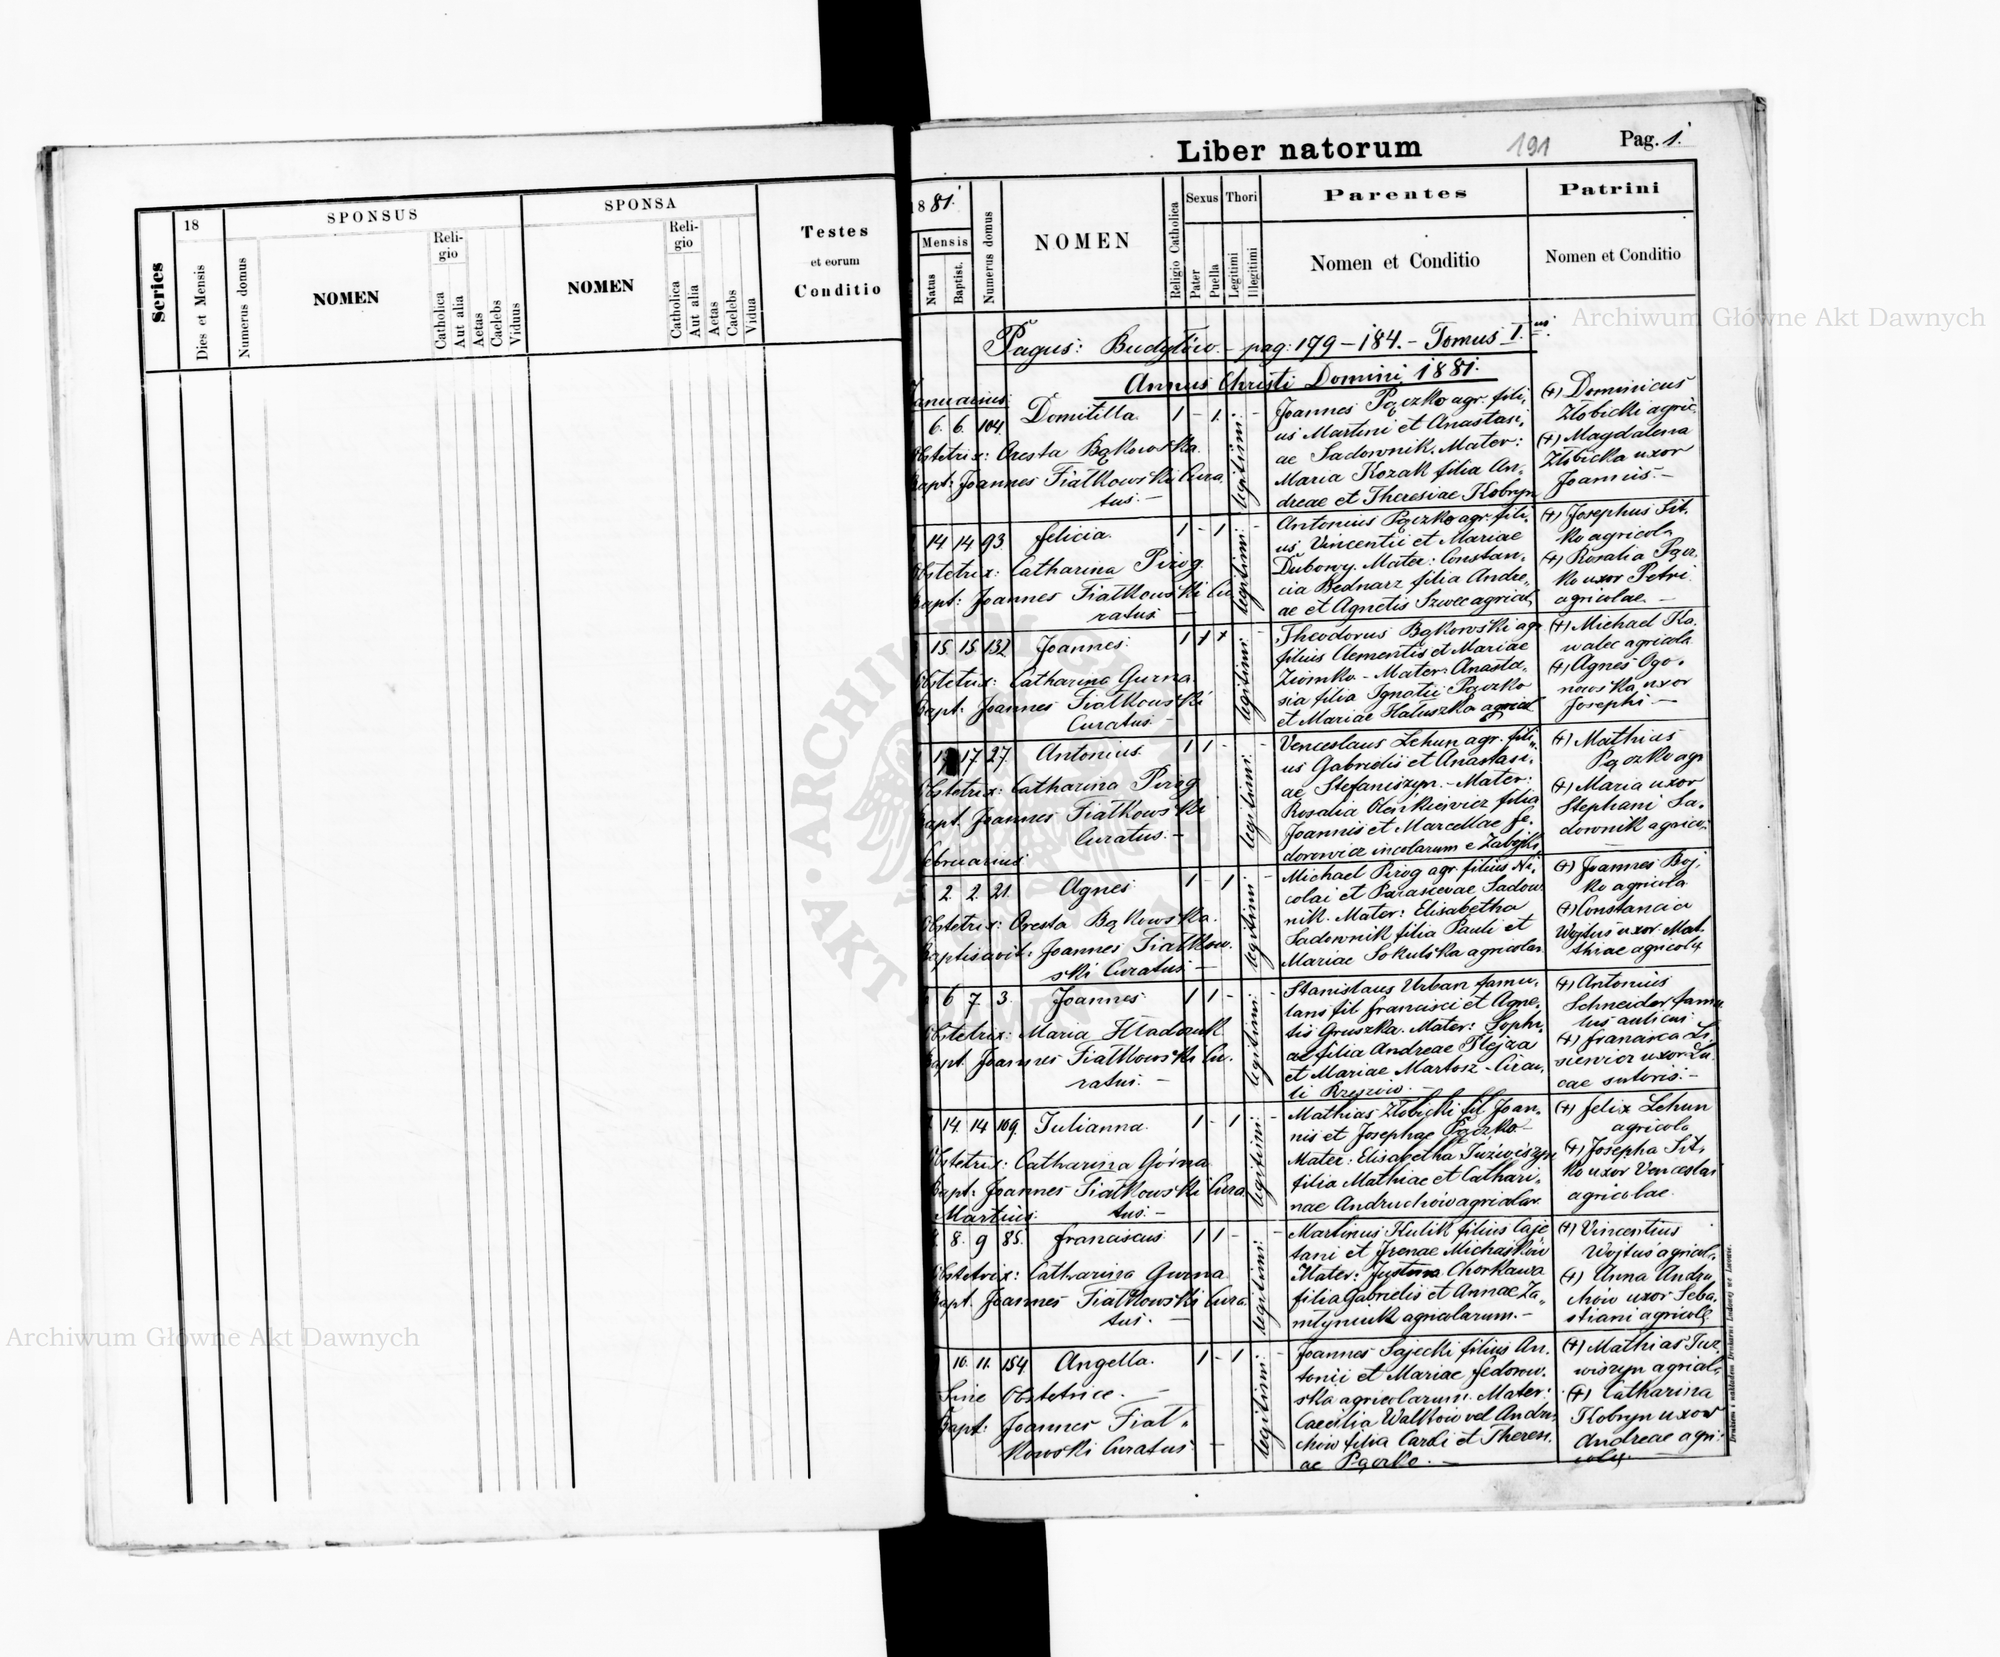 Series
18
Dies et Mensis
SPONSUS
Numerus domus
NOMEN
Religio
Catholica
Aut alia
Aetas
Caelebs
Viduus
SPONSA
NOMEN
Religio
Catholica
Aut alia
Aetas
Caelebs
Vidua
Testes
et eorum
Conditio
Liber natorum
191
Pag. 1.
1881.
Mensis
Natus
Baptist.
Numerus domus
NOMEN
Religio Catholica
Sexus
Pater
Puella
Thori
Legitimi
Illegitimi
Parentes
Nomen et Conditio
Patrini
Nomen et Conditio
Pagus: Budyłów. - pag: 179 - 184. - Tomus I.
Annus Christi Domini 1881.
Januarius
6. 6. 104. Domitilla. 1 - 1. legitimi -
Obstetrix: Oresta Bąkowska.
Bapt: Joannes Fiałkowski Cura
tus. -
Joannes Pączko agr. fili,
us Martini et Anastasi,
ae Sadownik. Mater:
Maria Kozak filia An,
dreae et Theresiae Kobryn
(+) Dominicus
Złobicki agric,
(+) Magdalena
Złobicka uxor
Joannis. -
14 14 93 Felicia. 1 - 1 - legitimi
Obstetrix: Catharina Pirog
Bapt: Joannes Fiałkowski Cu
ratus -
Antonius Pączko agr. fili,
us Vincentii et Mariae
Dubowy. Mater: Constan,
cia Bednarz filia Andre,
ae et Agnetis Szwec agricol,
(+) Josephus Sit,
ko agricola
(+) Rosalia Pącz,
ko uxor Petri
agricolae. -
15 15 132 Joannes. 1 legitimi
Obstetrix: Catharina Gurna.
Bapt: Joannes Fiałkowski
Curatus. -
Theodorus Bąkowski agr
filius Clementis et Mariae
Ziomko. - Mater: Anasta,
sia filia Ignatii Pączko
et Mariae Hałuszka agricol
(+) Michael Ko,
walec agricola
(+) Agnes Ogo,
nowska uxor
Josephi -
17 27. Antonius. 1 1 - legitimi
Obstetrix: Catharina Pirog
Bapt. Joannes Fiałkowski
Curatus. -
Venceslaus Lehun agr. fili,
us Gabrielis et Anastasi,
ae Stefaniszyn. - Mater:
Rosalia Oleńkiewicz filia
Joannis et Marcellae Fe,
dorowicz incolarum e
(+) Mathias
Pączko agr
(+) Maria uxor
Stephani Sa,
downik agrico,
Februarius
2. 2. 21. Agnes 1 - 1 - legitimi
Obstetrix: Oresta Bąkowska.
Baptisavit: Joannes Fiałkow,
ski Curatus. -
Michael Pirog agr. filius Ni,
colai et Parascevae Sadow
nik. Mater: Elisabetha
Sadownik filia Pauli et
Mariae Sokulska agricolar.
(+) Joannes Boj,
ko agricola
(+) Constancia
Wojtuś uxor Mat,
thiae agricolę
6 7. 3. Joannes. 1 1 - - legitimi
Obstetrix: Maria
Bapt. Joannes Fiałkowski Cu,
ratus. -
Stanislaus Urban famu,
lans fil Francisci et Agne,
tis Gruszka. Mater: Sophi,
ae filia Andreae
et Mariae Martosz -
(+) Antonius
Schneider famu
lus aulicus.
(+) Francisca Li,
siewicz uxor Lu,
cae sutoris. -
14. 14 109. Julianna. 1 - 1 - legitimi
Obstetrix: Catharina Górna
Bapt: Joannes Fiałkowski Cura,
tus. -
Mathias Złobicki fil Joan,
nis et Josephae Pączko -
Mater: Elisabetha
filia Mathiae et Cathari,
nae Andruchów agricolar.
(+) Felix Lehun
agricola
(+) Josepha Sit,
ko uxor Venceslai
agricolae.
Martius
8. 9 85. Franciscus 1 1 - legitimi
Obstetrix: Catharina Gurna
Bapt. Joannes Fiałkowski Cura
tus. -
Martinus Kulik filius Caje
tani et Irenae Michajłów
Mater: Justina Chorkawa
filia Gabrielis et Annae Za,
młyniuk agricolarum. -
(+) Vincentius
Wojtuś agricol,
(+) Anna Andru,
chów uxor Seba,
stiani agricolę
10. 11. 154 Angella. 1 - 1 legitimi
Sine Obstetrice. -
Bapt: Joannes Fiał,
kowski Curatus. -
Joannes Sajecki filius An,
tonii et Mariae Fedorow,
ska agricolarum. Mater:
Caecilia Walków vel Andru,
chów filia Caroli et Theresi,
ae Pączko. -
(+) Mathias
agricola
(+) Catharina
Kobryn uxor
Andreae agri,
colę.
Drukiem i nakładem Drukarni Ludowej we Lwowie.
Archiwum Główne Akt Dawnych
Archiwum Główne Akt Dawnych